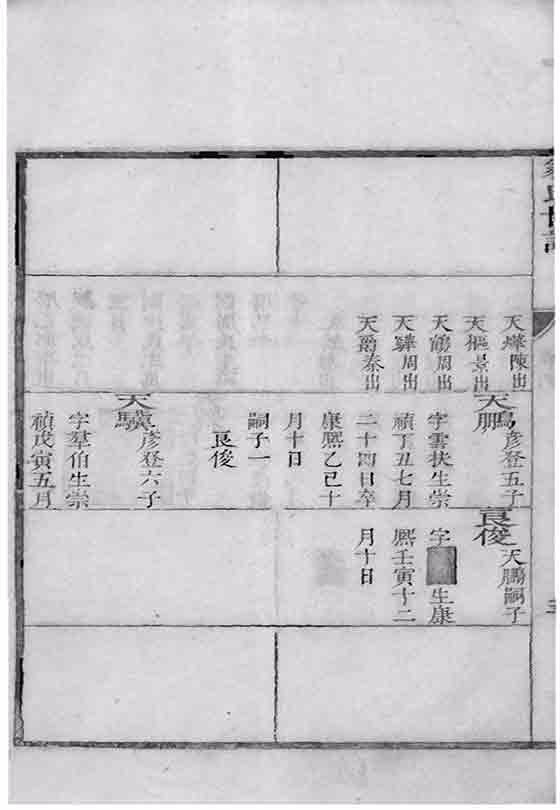 天燁陳出
天樞景出
天鶴周出
天驊周出
天爵秦出
天鵬彥登五子
字雲扶生崇
禎丁丑七月
二十四日卒
康熙乙巳十
月十日
嗣子一
良俊
天驥彥登六子
字羣伯生崇
禎戊寅五月
良俊天鵬嗣子
字 生康
熙壬寅十二
月十日